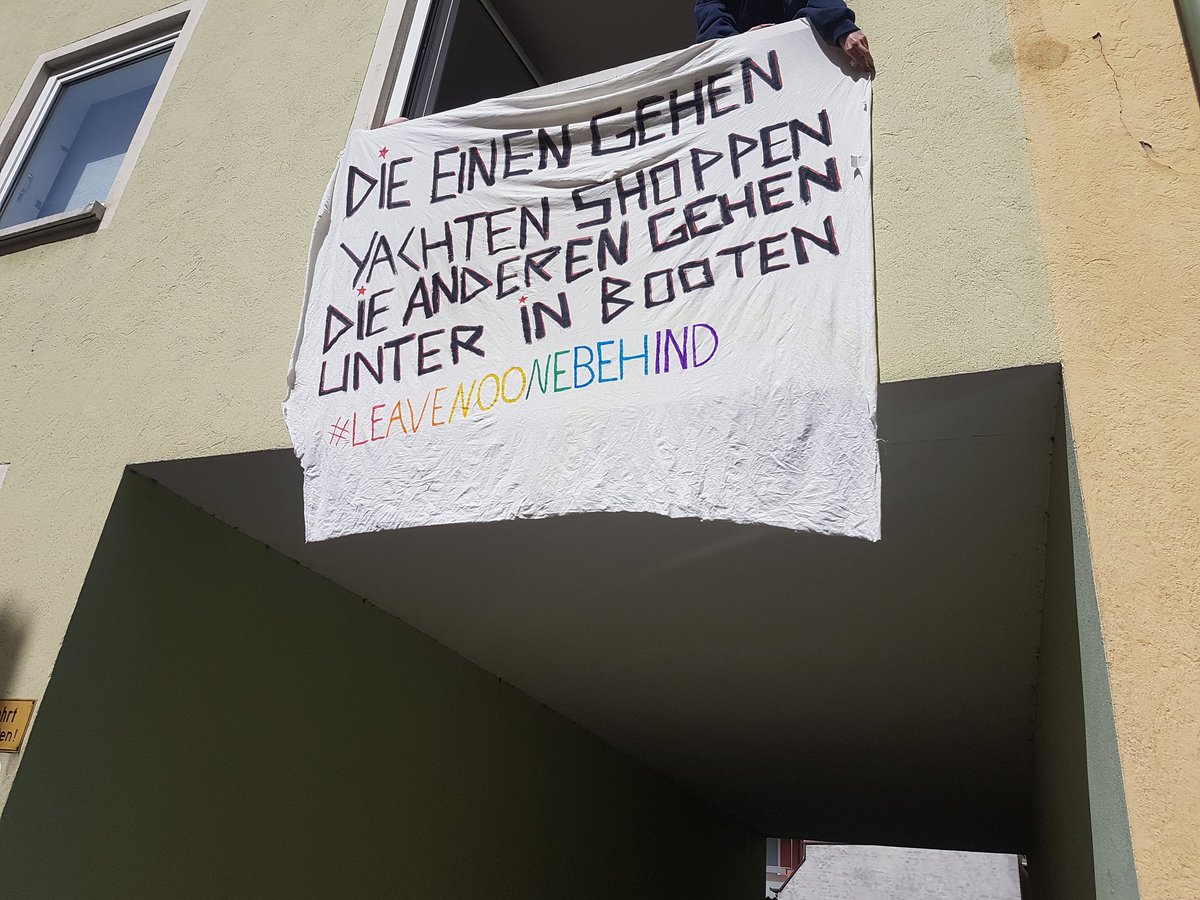 DIE EINEN GEHEN
YACHTEN SHOPPEN
DIE ANDEREN GEHEN
UNTER IN BOOTEN
#LEAVENOONEBEHIND